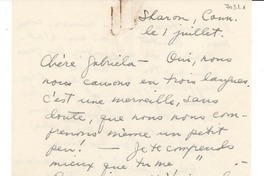 Sharon, Conn.
le 1 juillet.
Chère Gabriela — Oui, nous
nous causons en trois langues.
c'est une merveille, sans
doute, que nous nous com-
prenons même un petit
peu! — Je te comprends
mieux que tu me "